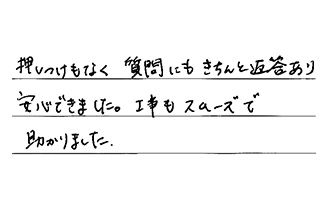 押しつけもなく 質問にもきちんと返答あり
安心できました。工事もスムーズで
助かりました.